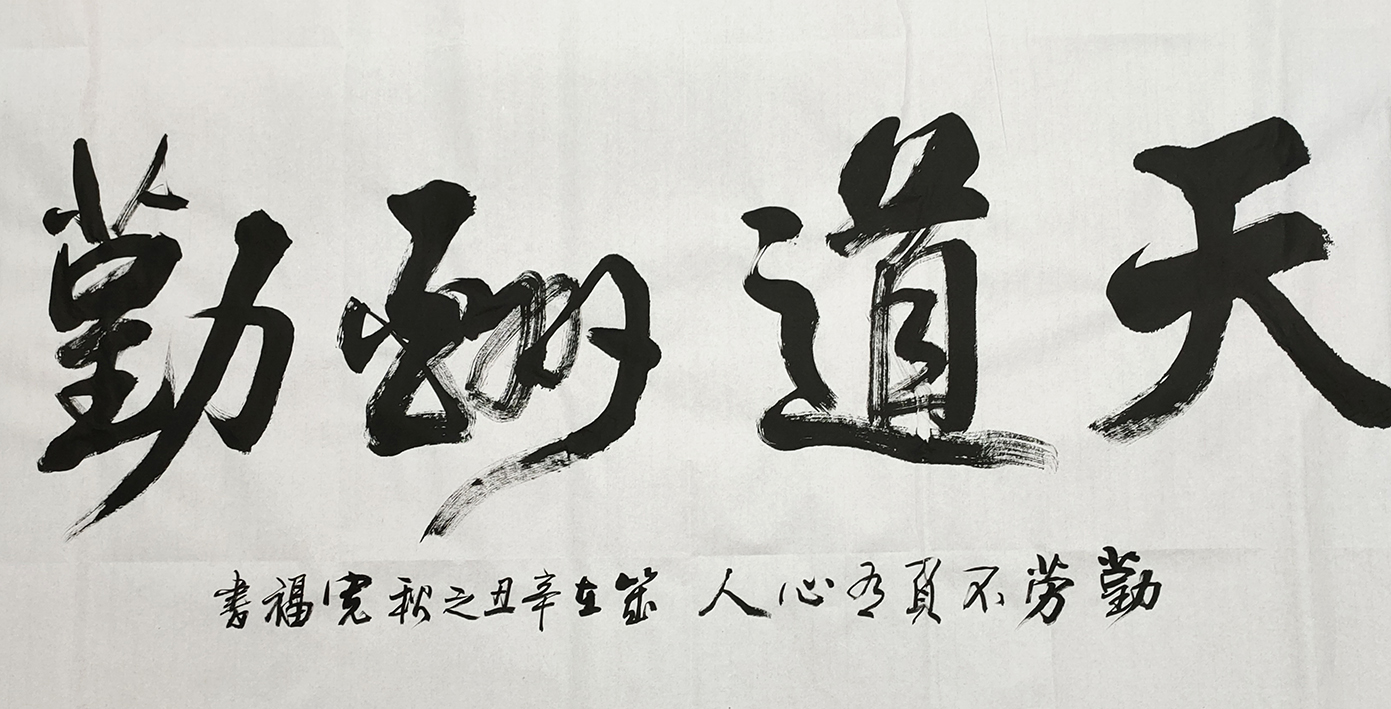 天道酬勤
勤劳不负有心人 岁在辛丑之秋 宪福书